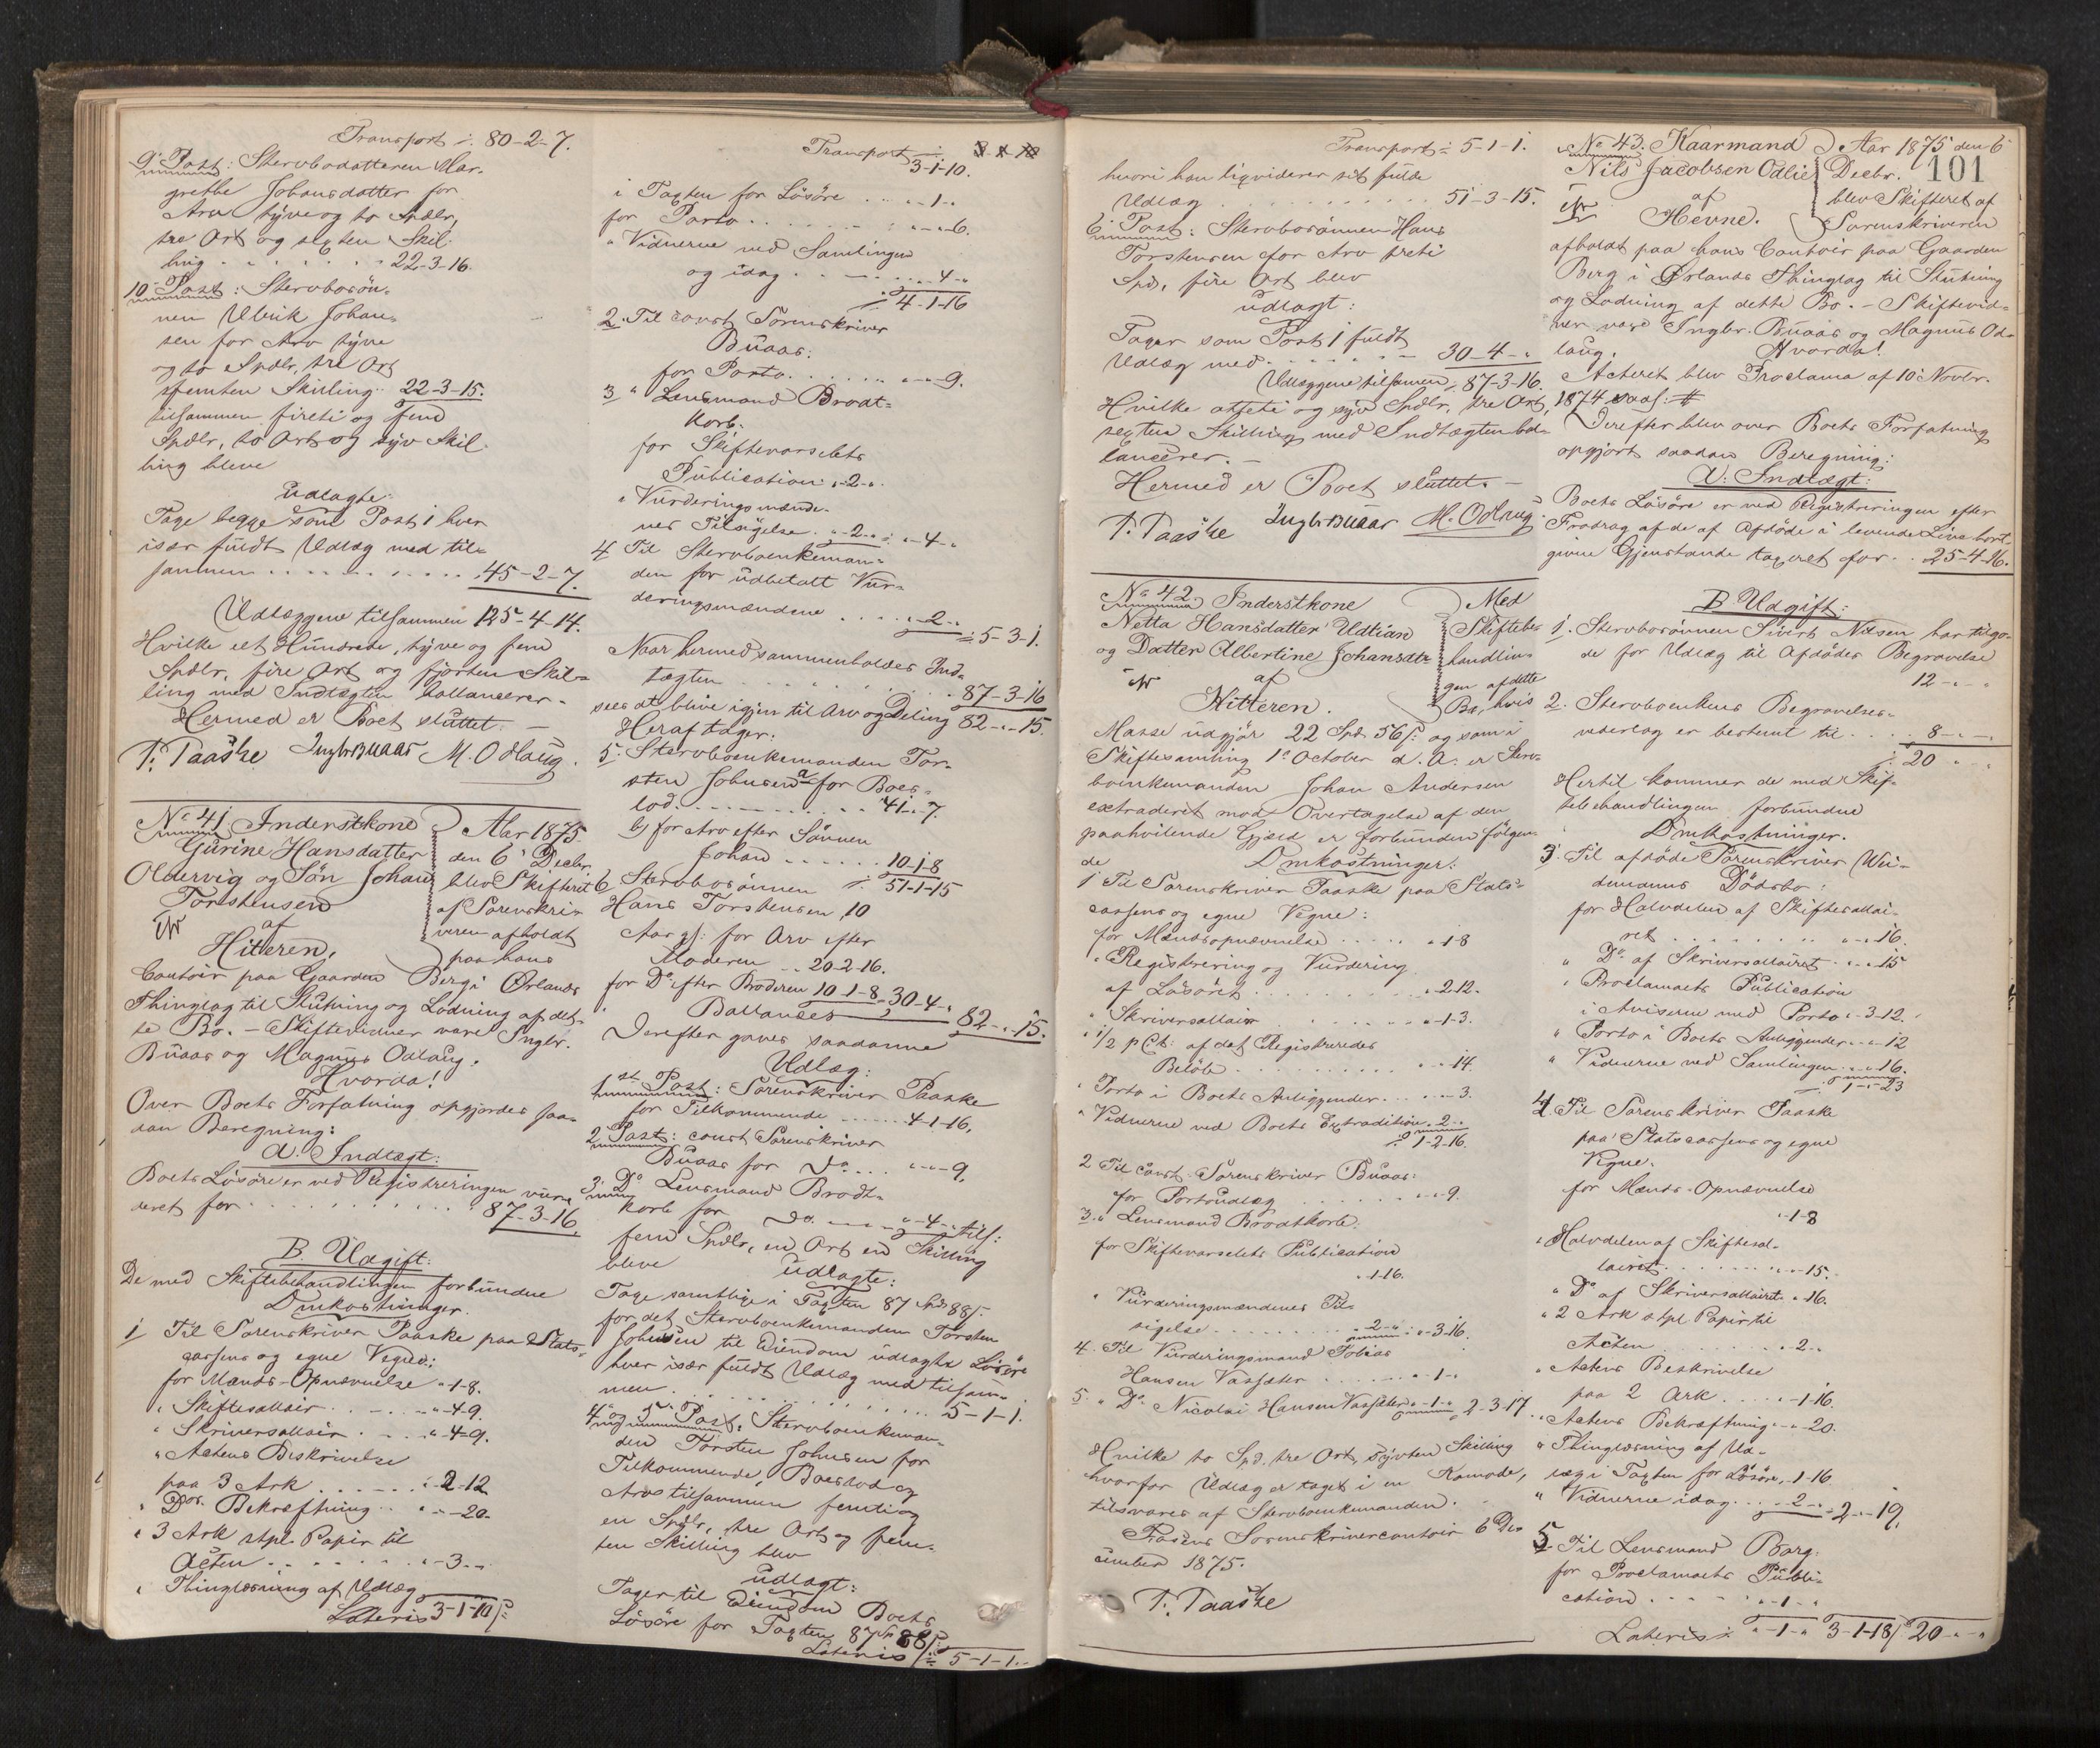 Transport ∺ 80-2-7.
9. Post: Stervbodatteren Mar-
grethe Johansdatter for
Arv tyve og to Spdlr,
tre Ort og sexten Skil-
ling . . . . . . 22-3-16.
10 Post: Stervbosøn-
nen Ulrik Johan-
sen for Arv tyve
og to Spdlr, tre Ort
femten Skilling . . 22-3-15.
tilsammen firti og fem
Spdlr, to Ort og syv Skil-
ling bleve
udlagte:
Tage begge som Post 1 hver
især fuldt Udlæg med til-
sammen . . . . . . . 45-2-7.
Udlæggene tilsammen 125-4-14.
Hvilke eet Hundrede, tyve og fem
Spdlr, fire Ort og fjorten Skil-
ling med Indtægten ballancerer.
Hermed er Boet sluttet. —
T. Paaske Ingbr Buaas M. Odlaug.
No 41. Inderstkone
Gurine Hansdatter
Oldervig og Søn Johan
Torstensen
af
Hitteren,
Aar 1875
den 6' Decbr.
blev Skifteret
af Sorenskri-
veren afholdt
paa hans
Contoir paa Gaarden Berg i Ørlands
Thinglag til Slutning og Lodning af det-
te Bo. — Skiftevidner vare Ingbr.
Buaas og Magnus Odlaug.
Hvorda!
Over Boets Forfatning opgjordes saa-
dan Beregning:
A. Indtægt:
Boets Løsøre er ved Registreringen vur-
deret for . . . . . . . . 87-3-16.
B. Udgift:
De med Skiftebehandlingen forbundne
Omkostninger.
1 Til Sorenskriver Paaske paa Stats-
cassens og egne Vegne:
for Mænds-Opnævnelse „-1-8.
„ Skiftesallair . . . . . „-4-9.
„ Skriversallair . . . . „-4-9.
„ Actens Beskrivelse
paa 3 Ark . . . . . „ 2-12
„ Dos. Bekræftning . . „-„-20.
„ 3 Ark stpl. Papir til
Acten . . . . . . . . „-3-„
„ Thinglæsning af Udlæg
Lateris 3-1-10 ∺
Transport ∺
3-1-10.
i Tagten for Løsøre . . . „-1-„
for Porto . . . . . . . „-„-6.
„ Vidnerne ved Samlingen
og idag . . . . . . . „-4-„
∺ 4-1-16
2. Til const. Sorenskriver
Buaas:
for Porto . . . . . . „-„-9.
3 „ Lensmand Brodt-
korb:
for Skiftevarselets
Publication „-2-„.
„ Vurderingsmænde-
nes Tilsigelse . „-2-„ ∺ „-4-„
4 Til Stervboenkeman-
den for udbetalt Vur-
deringsmændene . . . . „-2-„
∺ 5-3-1.
Naar hermed sammenholdes Ind-
tægten . . . . . . . . 87-3-16
sees at blive igjen til Arv og Deling 82-„-15.
Heraf tager:
5. Stervboenkemanden Tor-
sten Johnsen a) for Boes-
lod . . . . . . . . . . 41-„-7.
b) for Arv efter Sønnen
Johan . . . . . . 10-1-8
∺ 51-1-15
6 Stervbosønnen
Hans Torstensen, 10
Aar gl: for Arv efter
Moderen . . 20-2-16.
for Do efter Broderen 10-1-8 ∺ 30-4-„
Ballances 82-„-15.
Derefter gaves saadanne
Udlæg:
1ste Post: Sorenskriver Paaske
for Tilkommende . . . . . 4-1-16.
2 Post: const. Sorenskriver
Buaas for Do . . . „-„-9.
3' Do Lensmand Brodt-
korb for Do. . . . . . „-4-„ tils:
fem Spdlr, en Ort en Skilling
bleve udlagte:
Tage samtlige i Tagten 87 Spd 88 ß
for det Stervboenkemanden Torsten
Johnsen til Eiendom udlagte Løsøre
hver især fuldt Udlæg med tilsam-
men . . . . . . . . . . . 5-1-1.
4 og 5te Post: Stervboenkeman-
den Torsten Johnsen for
Tilkommende Boeslod og
Arv tilsammen femti og
en Spdlr, tre Ort og fem-
ten Skilling blev
udlagt:
Tager til Eiendom Boets
Løsøre for Tagten 87 Sp 88 ß
Lateris ∺ 5-1-1.
Transport ∺ 5-1-1.
hvori han liqviderer sit fulde
Udlæg . . . . . . . . . . . 51-3-15.
6 Post: Stervbosønnen Hans
Torstensen for Arv treti
Spd, fire Ort blev
udlagt:
Tager som Post 1 fuldt
Udlæg med . . . . . . . 30-4-„
Udlæggene tilsammen 87-3-16.
Hvilke otteti og syv Spdlr, tre Ort,
sexten Skilling med Indtægten bal-
lancerer. —
Hermed er Boet sluttet. —
T. Paaske Ingbr Buaas M. Odlaug.
No 42. Inderstkone
Netta Hansdatter Udtian
og Datter Albertine Johansdtr
af
Hitteren.
Med
Skiftebe-
handlin-
gen af dette
Bo, hvis
Masse udgjør 22 Spd. 56 ß og som i
Skiftesamling 1e October d. A. er Sterv-
boenkemanden Johan Andersen
extraderet mod Overtagelse af den
paahvilende Gjæld er forbunden følgen-
de Omkostninger:
1 Til Sorenskriver Paaske paa Stats-
cassens og egne Vegne:
for Mændsopnævnelse . . . . . „ 1-8
„ Registrering og Vurdering
af Løsøret . . . . . . . . . „-2-12.
„ Skriversallair . . . . . . . . „-1-3.
„ 1/2 pCt: af det Registreredes
Beløb . . . . . . . . . . „-„-14.
„ Porto i Boets Anliggender . . . „-„-3.
„ Vidnerne ved Boets Extradition „-2-„
∺ 1-2-16.
2 Til const. Sorenskriver Buaas:
for Portoudlæg . . . . . . . „-„-9.
3. „ Lensmand Brodtkorb:
for Skiftevarselets Publication
„-1-16.
„ Vurderingsmændenes Til-
sigelse . . . . . . . . . „-2-„ ∺ „-3-16.
4. Til Vurderingsmand Tobias
Hansen Vasseter . . . . . . „-1-„
5. „ Do Nicolai Hansen Vasseter „-1-„ 2-3-17.
Hvilke to Spd. tre Ort, sytten Skilling
hvorfor Udlæg er taget i en Komode,
tilsvares af Stervboenkemanden.
Fosens Sorenskrivercontoir 6 De-
cember 1875.
T. Paaske
101
No 43. Kaarmand
Nils Jacobsen Odlie
af
Hevne.
Aar 1875 den 6'
Decbr.
blev Skifteret af
Sorenskriveren
afholdt paa hans Contoir paa Gaarden
Berg i Ørlands Thinglag til Slutning
og Lodning af dette Bo. — Skiftevid-
ner vare Ingbr. Buaas og Magnus Od-
laug. Hvorda!
Acteret blev Proclama af 10' Novbr.
1874 saal: #
Derefter blev over Boets Forfatning
opgjort saadan Beregning:
A: Indtægt:
Boets Løsøre er ved Registreringen efter
Fradrag af de af Afdøde i levende Live bort-
givne Gjenstande taxeret for . . 25-4-16.
B Udgift:
1. Stervbosønnen Sivert Nilsen har tilgo-
de for Udlæg til Afdødes Begravelse
12-„-„
2. Stervboenkens Begravelses-
vederlag er bestemt til . . . . . 8-„-„
∺ 20 „ „
Hertil kommer de med Skif-
tebehandlingen forbundne
Omkostninger.
3 Til afdøde Sorenskriver Wei-
demanns Dødsbo:
for Halvdelen af Skiftesallai-
ret . . . . . . . . . „-„-16.
„ Do. af Skriversallairet . . „-„-15
„ Proclamaets Publication
i Aviserne med Porto „-3-12.
„ Porto i Boets Anliggender . . „-„-12
„ Vidnerne ved Samlingen . . „-„-16.
∺ 1-„-23
4 Til Sorenskriver Paaske
paa Statscassens og egne
Vegne:
for Mænds-Opnævnelse
„-1-8
„ Halvdelen af Skiftesal-
lairet . . . . . . . „-„-15.
„ Do af Skriversallairet . „-16.
„ 2 Ark stpl. Papir til
Acten . . . . . . . . „-2-„
„ Actens Beskrivelse
paa 2 Ark . . . . . „-1-16.
„ Actens Bekræftning „-„-20.
„ Thinglæsning af Ud-
læg i Tagten for Løsøre „-1-16
„ Vidnerne idag . . . „-2-„ ∺ 2-„-19.
5. Til Lensmand Borg:
for Proclamaets Publi-
cation . . . . . . „-1-„
Lateris ∺ „-1-„ 3-1-18 ∺ 20-„-„